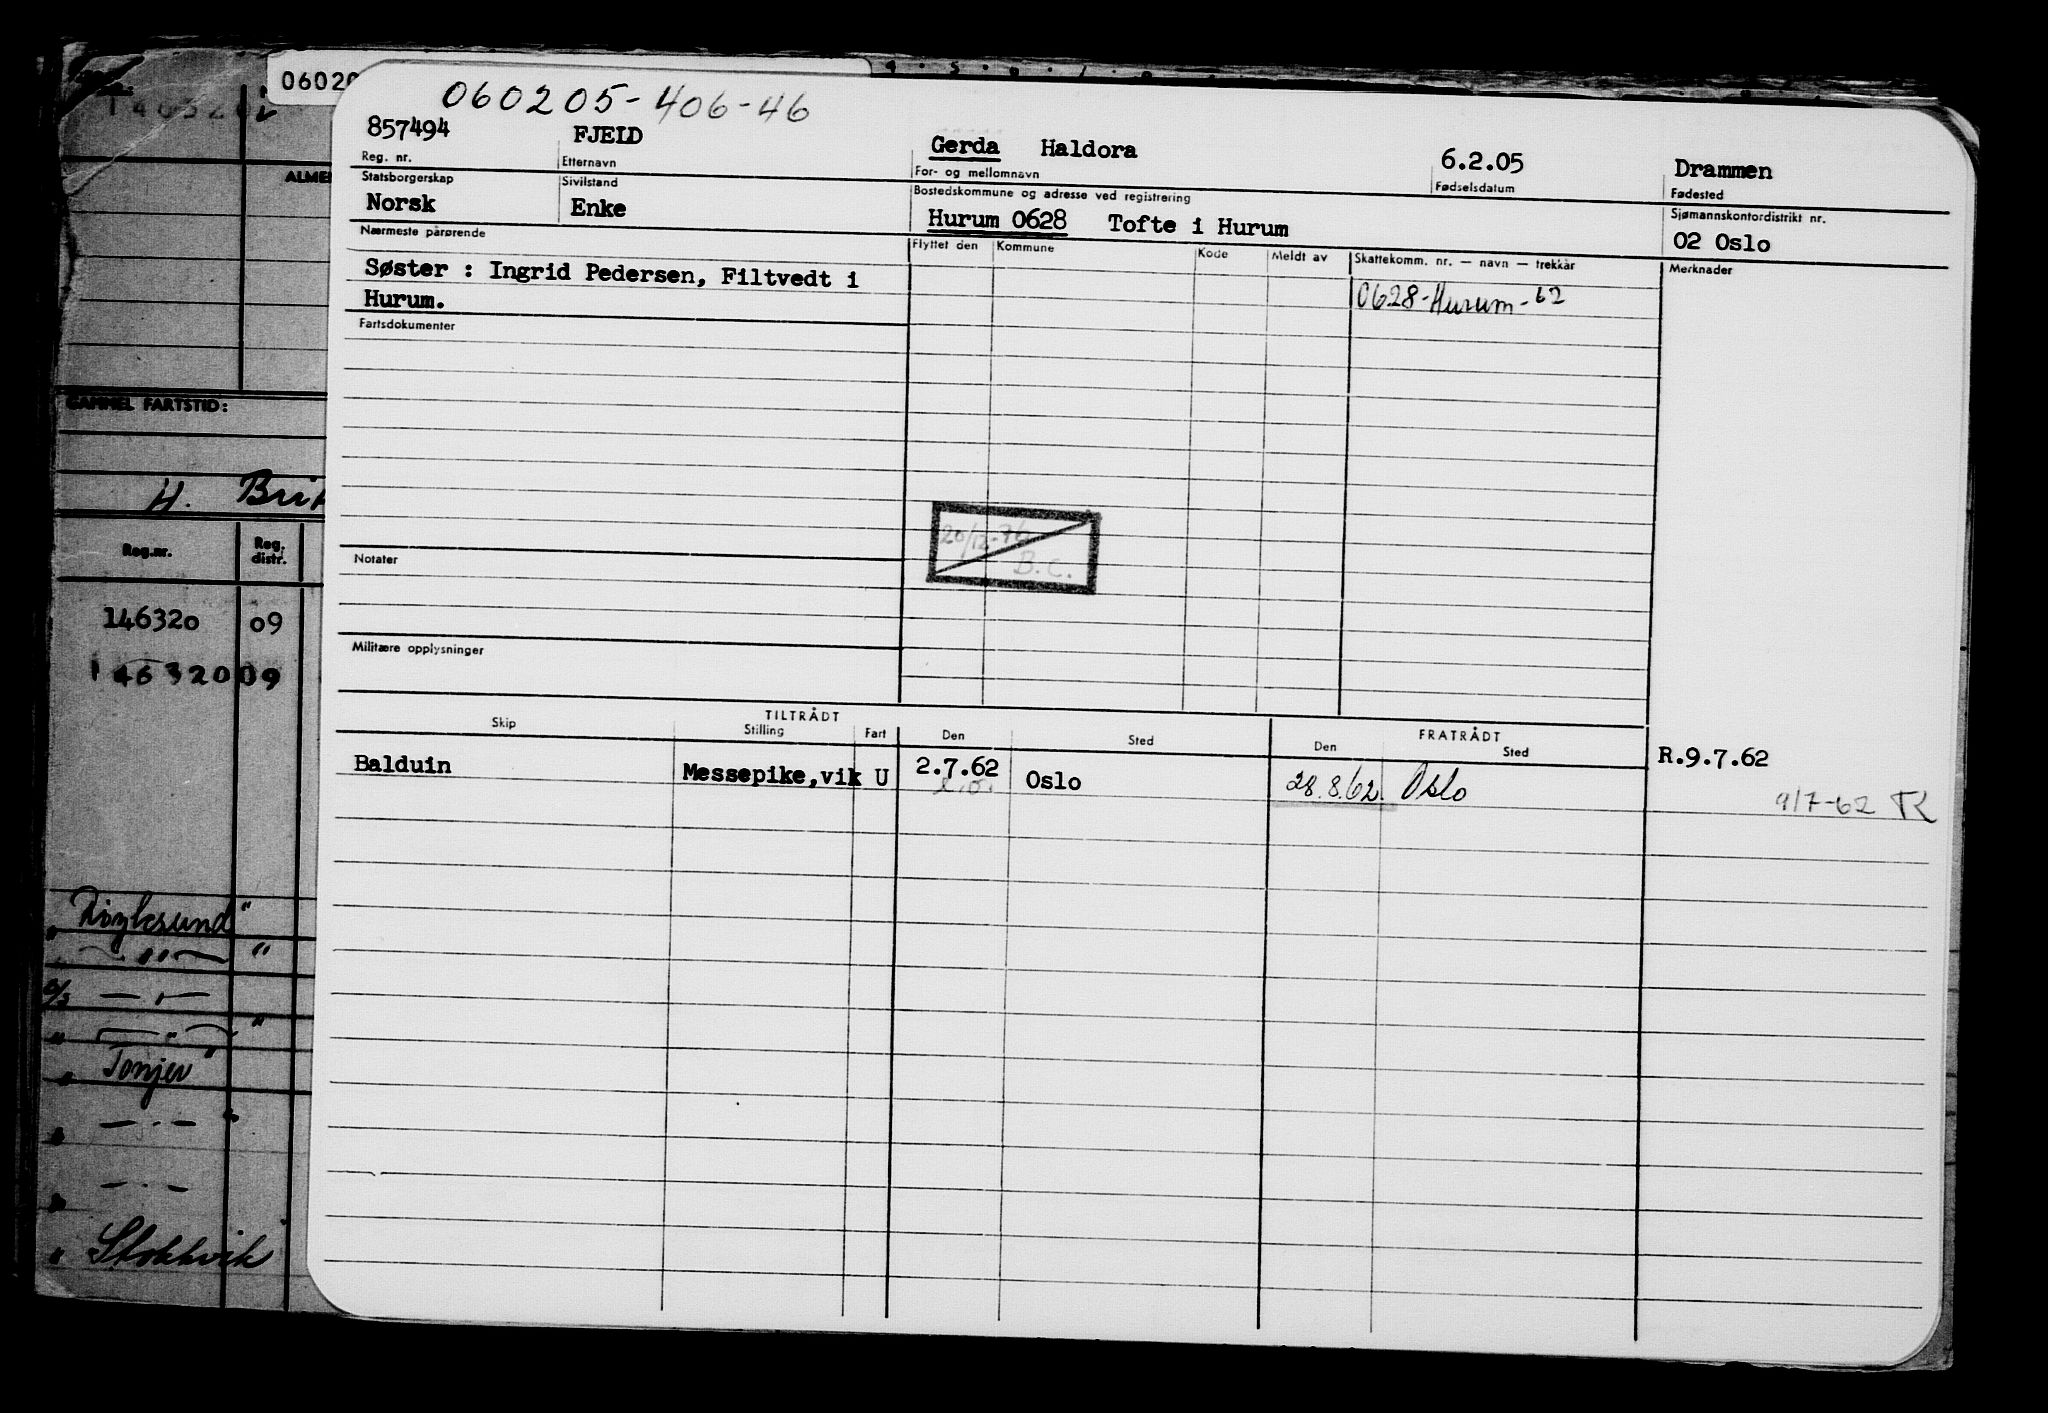 060205-406-46
857494 FJELD Gerda Haldora 6.2.05 Drammen
Reg. nr. Etternavn For- og mellomnavn Fødselsdatum Fødested
Statsborgerskap Sivilstand Bostedskommune og adresse ved registrering Sjømannskontordistrikt nr.
Norsk Enke Hurum 0628 Tofte i Hurum 02 Oslo
Nærmeste pårørende Flyttet den Kommune Kode Meldt av Skattekomm. nr. — navn — trekkår Merknader
Søster : Ingrid Pedersen, Filtvedt i
Hurum.
0628-Hurum-62
Fartsdokumenter
20/12-76
B.C.
Notater
Militære opplysninger
TILTRÅDT FRATRÅDT
Skip Stilling Fart Den Sted Den Sted
Balduin Messepike,vik U 2.7.62 Oslo 28.8.62. Oslo R.9.7.62
9/7-62 TK
06020
146320
ALME
GAMMEL FARTSTID:
H. Bri
Reg.nr. Reg. distr.
146320 09
146320 09
" "
"
"
Tonjer "
" Stokkvik